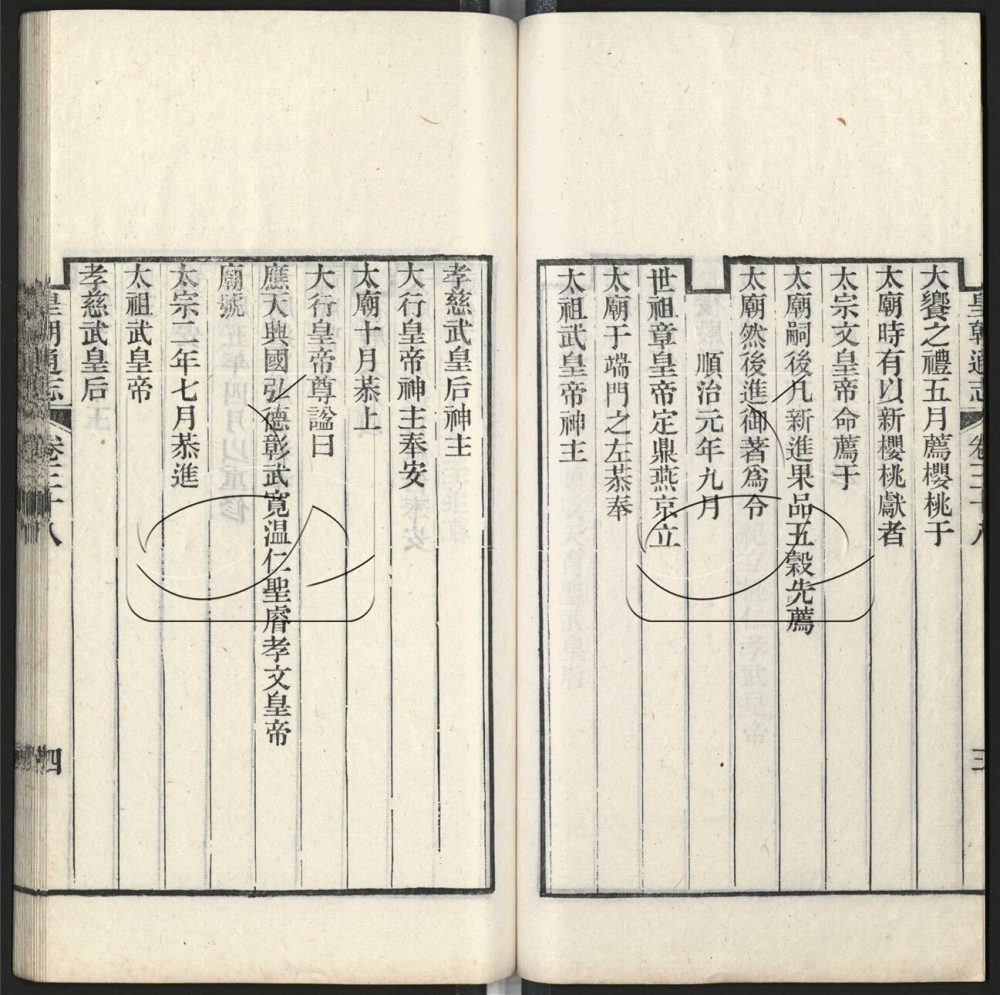 皇朝通志 卷三十八 三
大饗之禮五月薦櫻桃于
太廟時有以新櫻桃獻者
太宗文皇帝命薦于
太廟嗣後凡新進果品五穀先薦
太廟然後進御著爲令
順治元年九月
世祖章皇帝定鼎燕京立
太廟于端門之左恭奉
太祖武皇帝神主
孝慈武皇后神主
大行皇帝神主奉安
太廟十月恭上
大行皇帝尊諡曰
應天興國弘德彰武寬温仁聖睿孝文皇帝
廟號
太宗二年七月恭進
太祖武皇帝
孝慈武皇后
皇朝通志 卷三十八 四